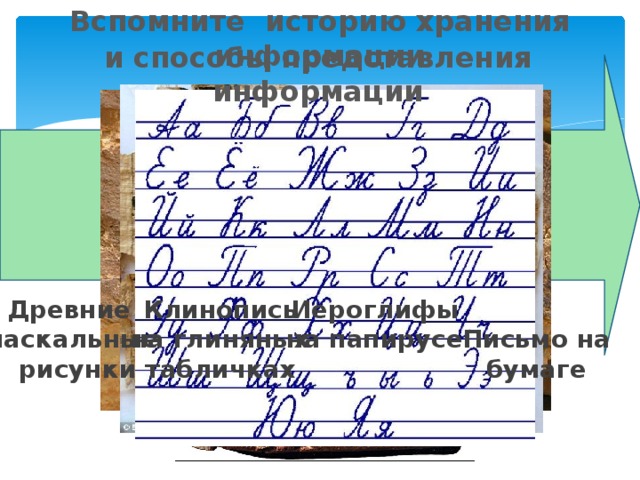 Вспомните историю хранения
информации
и способы представления
информации
Аа Бб Вв Гг Дд
Ее Ёё Жж Зз Ии
Йй Кк Лл Мм Нн
Оо Пп Рр Сс Тт
Уу Фф Хх Цц Чч
Шш Щщ ъ ы ь Ээ
Юю Яя
Древние
наскальные
рисунки
Клинопись
на глиняных
табличках
Иероглифы
на папирусе
Письмо на
бумаге